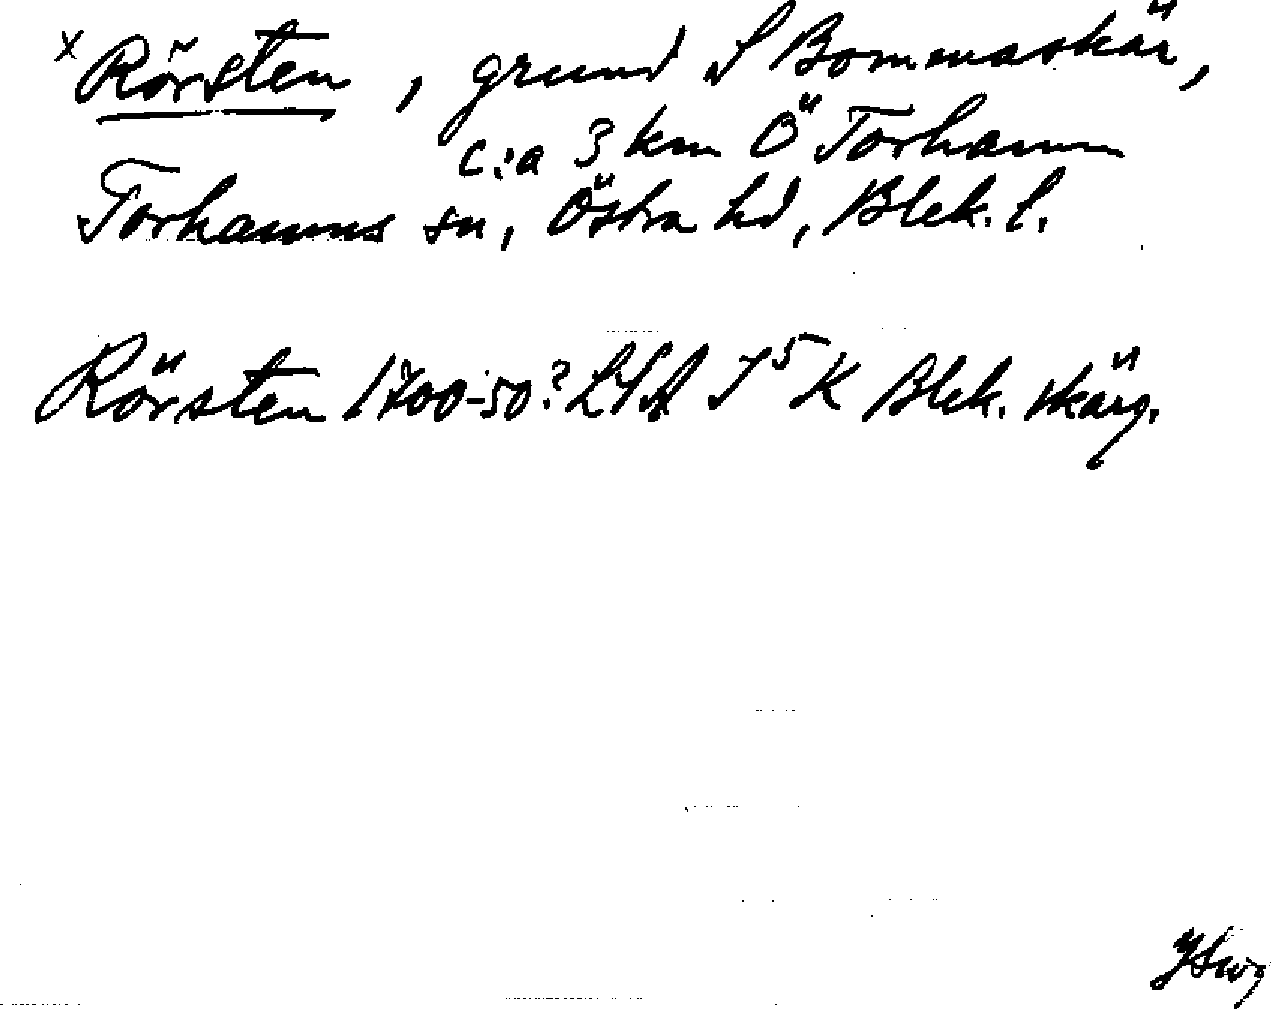 x Rörsten, grund S Bommaskär,
c:a 3 km Ö Torhamn
Torhamns sn, Östra hd, Blek. l.
Rörsten 1700-50? LSA J⁵ K Blek. skärg.